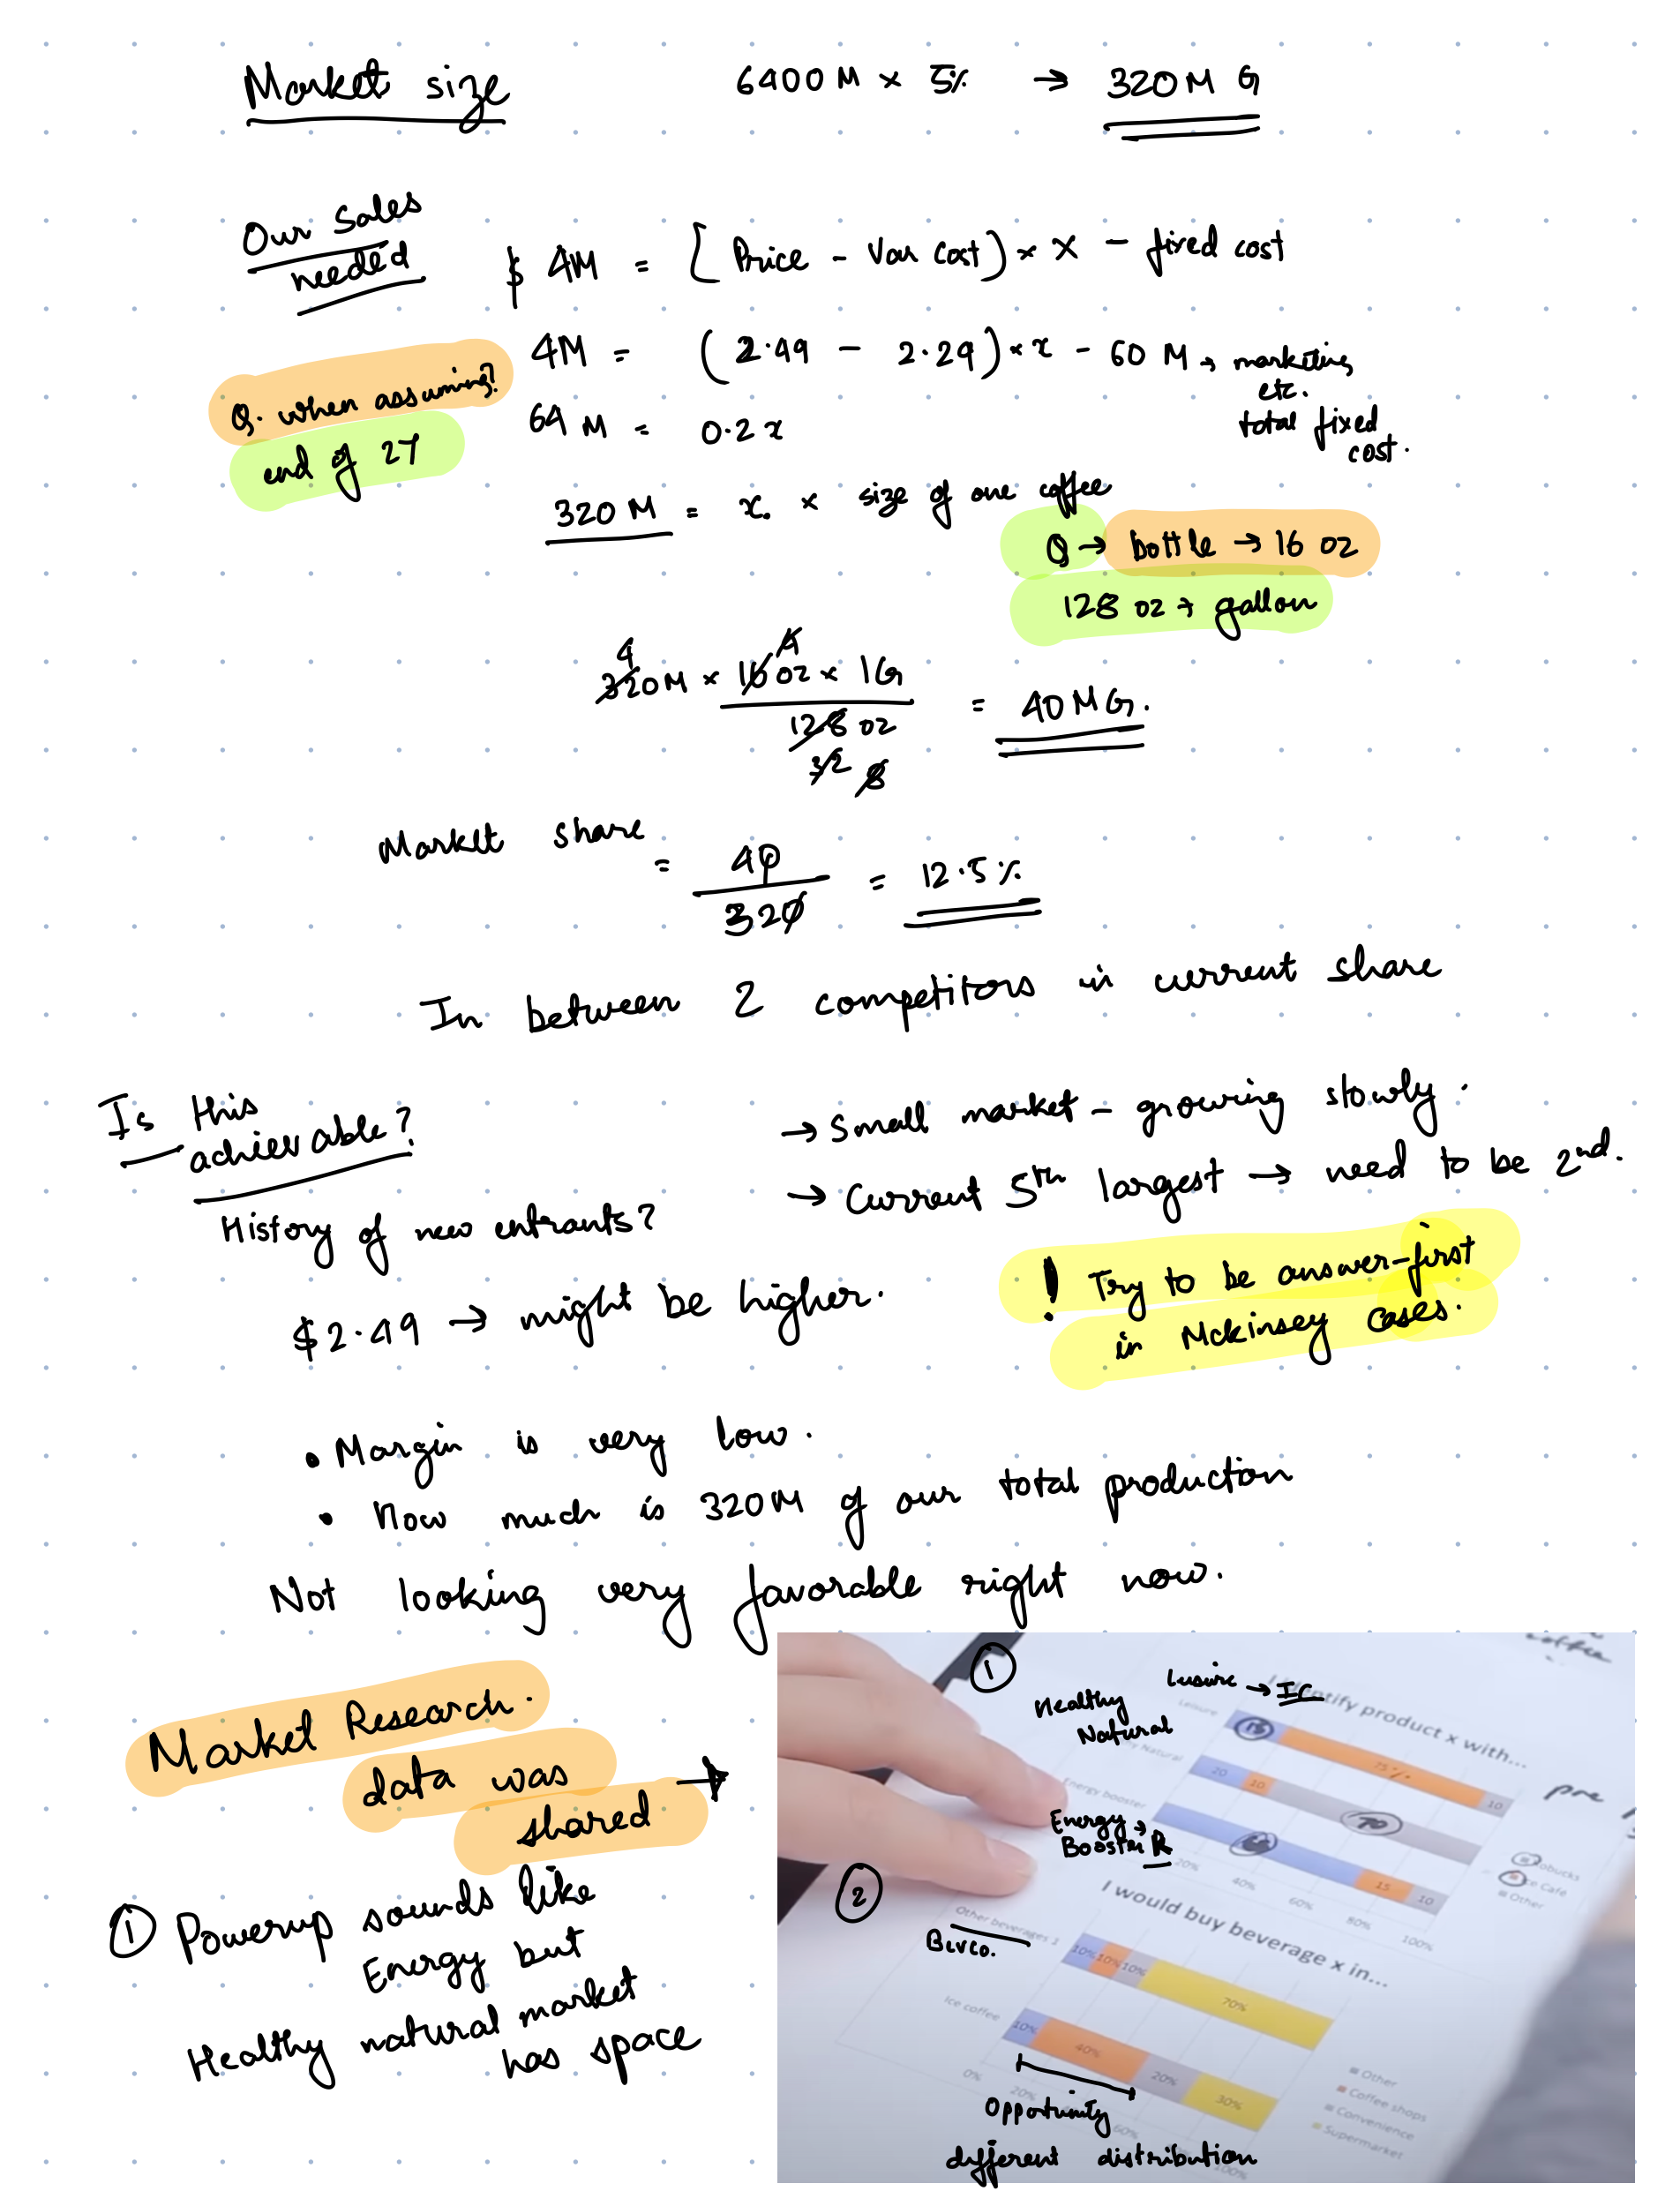 Market size
6400 M × 5% → 320 M G
Our Sales
needed
$ 4M = [Price - Var Cost) × X - fixed cost
4M = (2.49 - 2.29) × x - 60 M → marketing
etc.
total fixed
cost.
Q. when assuming?
end of 2Y
64 M = 0.2 x
320 M = x. × size of one coffee
Q → bottle → 16 oz
128 oz → gallon
4 4
320M × 16 oz × 1G
128 oz
32 8
= 40 M G.
Market share
= 40
320
= 12.5 %
In between 2 competitors in current share
Is this
achievable?
→ Small market - growing slowly.
→ Current 5th largest → need to be 2nd.
History of new entrants?
$2.49 → might be higher.
! Try to be answer-first
in Mckinsey cases.
• Margin is very low.
• How much is 320M of our total production
Not looking very favorable right now.
Market Research.
data was
shared →
① Powerup sounds like
Energy but
Healthy natural market
has space
①
Lusire → IC
Healthy
Natural
Energy →
Booster R
I identify product x with...
Leisure
75%
10
Natural
20 10 70
Energy booster
15 10
20% 40% 60% 80% 100%
Ice Cafe
Other
pre
②
I would buy beverage x in...
Other beverages 1
Bevco.
10% 10% 10% 70%
Ice coffee
10% 40% 20% 30%
0% 20% 60% 100%
Other
Coffee shops
Convenience
Supermarket
Opportunity
different distribution